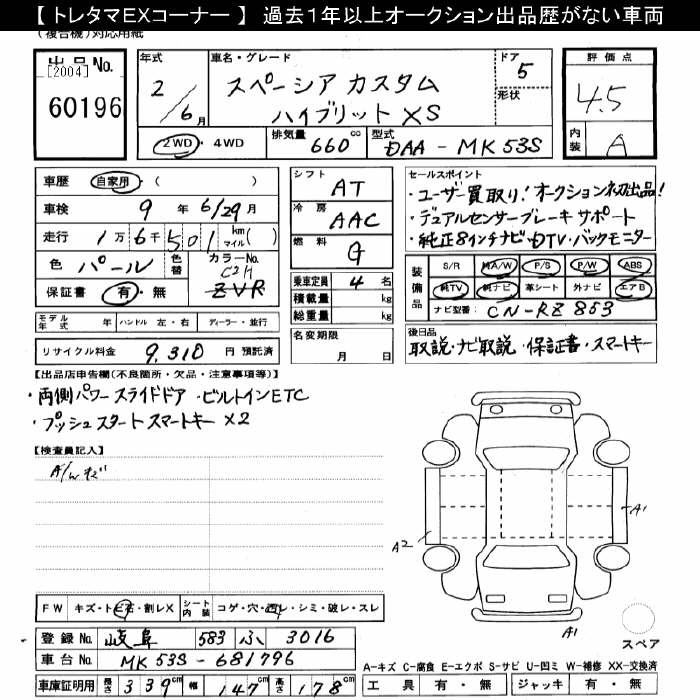 【 トレタマEXコーナー 】 過去１年以上オークション出品歴がない車両
(複合機)対応用紙
出品No.
[2004]
60196
年式
2/6月
車名・グレード
スペーシア カスタム
ハイブリット XS
ドア
5
形状
評価点
4.5
内装
A
2WD・4WD
排気量
660 cc
型式
DAA - MK53S
車歴 自家用・( )
車検 9年 6/29月
走行 1万6千501 km マイル( )
色 パール
色替
カラーNo. C2H
ZVR
保証書 有・無
シフト
AT
冷房
AAC
燃料
G
乗車定員 4 名
積載量 kg
総重量 kg
名変期限
月 日
セールスポイント
・ユーザー買取り!オークション初出品!
・デュアルセンサーブレーキサポート
・純正8インチナビ・DTV・バックモニター
装備品
S/R A/W P/S P/W ABS
純TV 純ナビ 革シート 外ナビ エアB
ナビ型番: CN-RZ853
モデル年式 年 ハンドル 左・右 ディーラー・並行
リサイクル料金 9,310 円 預託済
後日品
取説・ナビ取説・保証書・スマートキー
【出品店申告欄(不良箇所・欠品・注意事項等)】
・両側パワースライドドア・ビルトインETC
・プッシュスタートスマートキー ×2
【検査員記入】
A2
A1
A1
スペア
FW キズ・トビ石・割レX
シート内装 コゲ・穴・汚レ・シミ・破レ・スレ
登録No. 岐阜 583 ふ 3016
車台No. MK53S-681796
車庫証明用 長さ 339cm 幅 147cm 高さ 178cm
A-キズ C-腐食 E-エクボ S-サビ U-凹ミ W-補修 XX-交換済
工具 有・無 ジャッキ 有・無